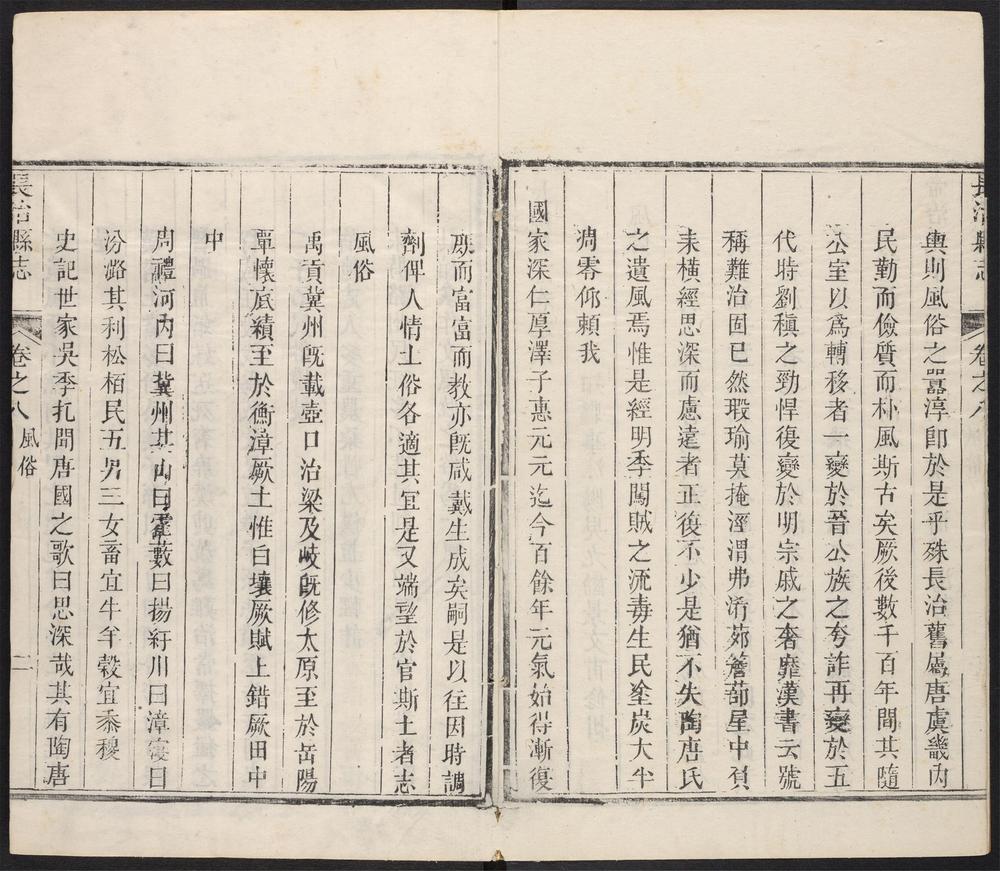 長治縣志
卷之八
輿則風俗之囂淳卽於是乎殊長治舊屬唐虞畿内
民勤而儉質而朴風斯古矣厥後數千百年間其隨
公室以爲轉移者一變於晉公族之夸詐再變於五
代時劉稹之勁悍復變於明宗戚之奢靡漢書云號
稱難治固已然瑕瑜莫掩涇渭弗淆茆簷蔀屋中負
耒橫經思深而慮遠者正復不少是猶不失陶唐氏
之遺風焉惟是經明季闖賊之流毒生民塗炭大半
凋零仰賴我
國家深仁厚澤子惠元元迄今百餘年元氣始得漸復
庶而富富而教亦旣咸戴生成矣嗣是以往因時調
劑俾人情土俗各適其宜是又端望於官斯土者志
風俗
禹貢冀州旣載壺口治梁及岐旣修太原至於岳陽
覃懷厎績至於衡漳厥土惟白壤厥賦上錯厥田中
中
周禮河内曰冀州其山曰霍藪曰揚紆川曰漳寖曰
汾潞其利松栢民五男三女畜宜牛羊穀宜黍稷
史記世家吳季札聞唐國之歌曰思深哉其有陶唐
長治縣志
卷之八
風俗
二